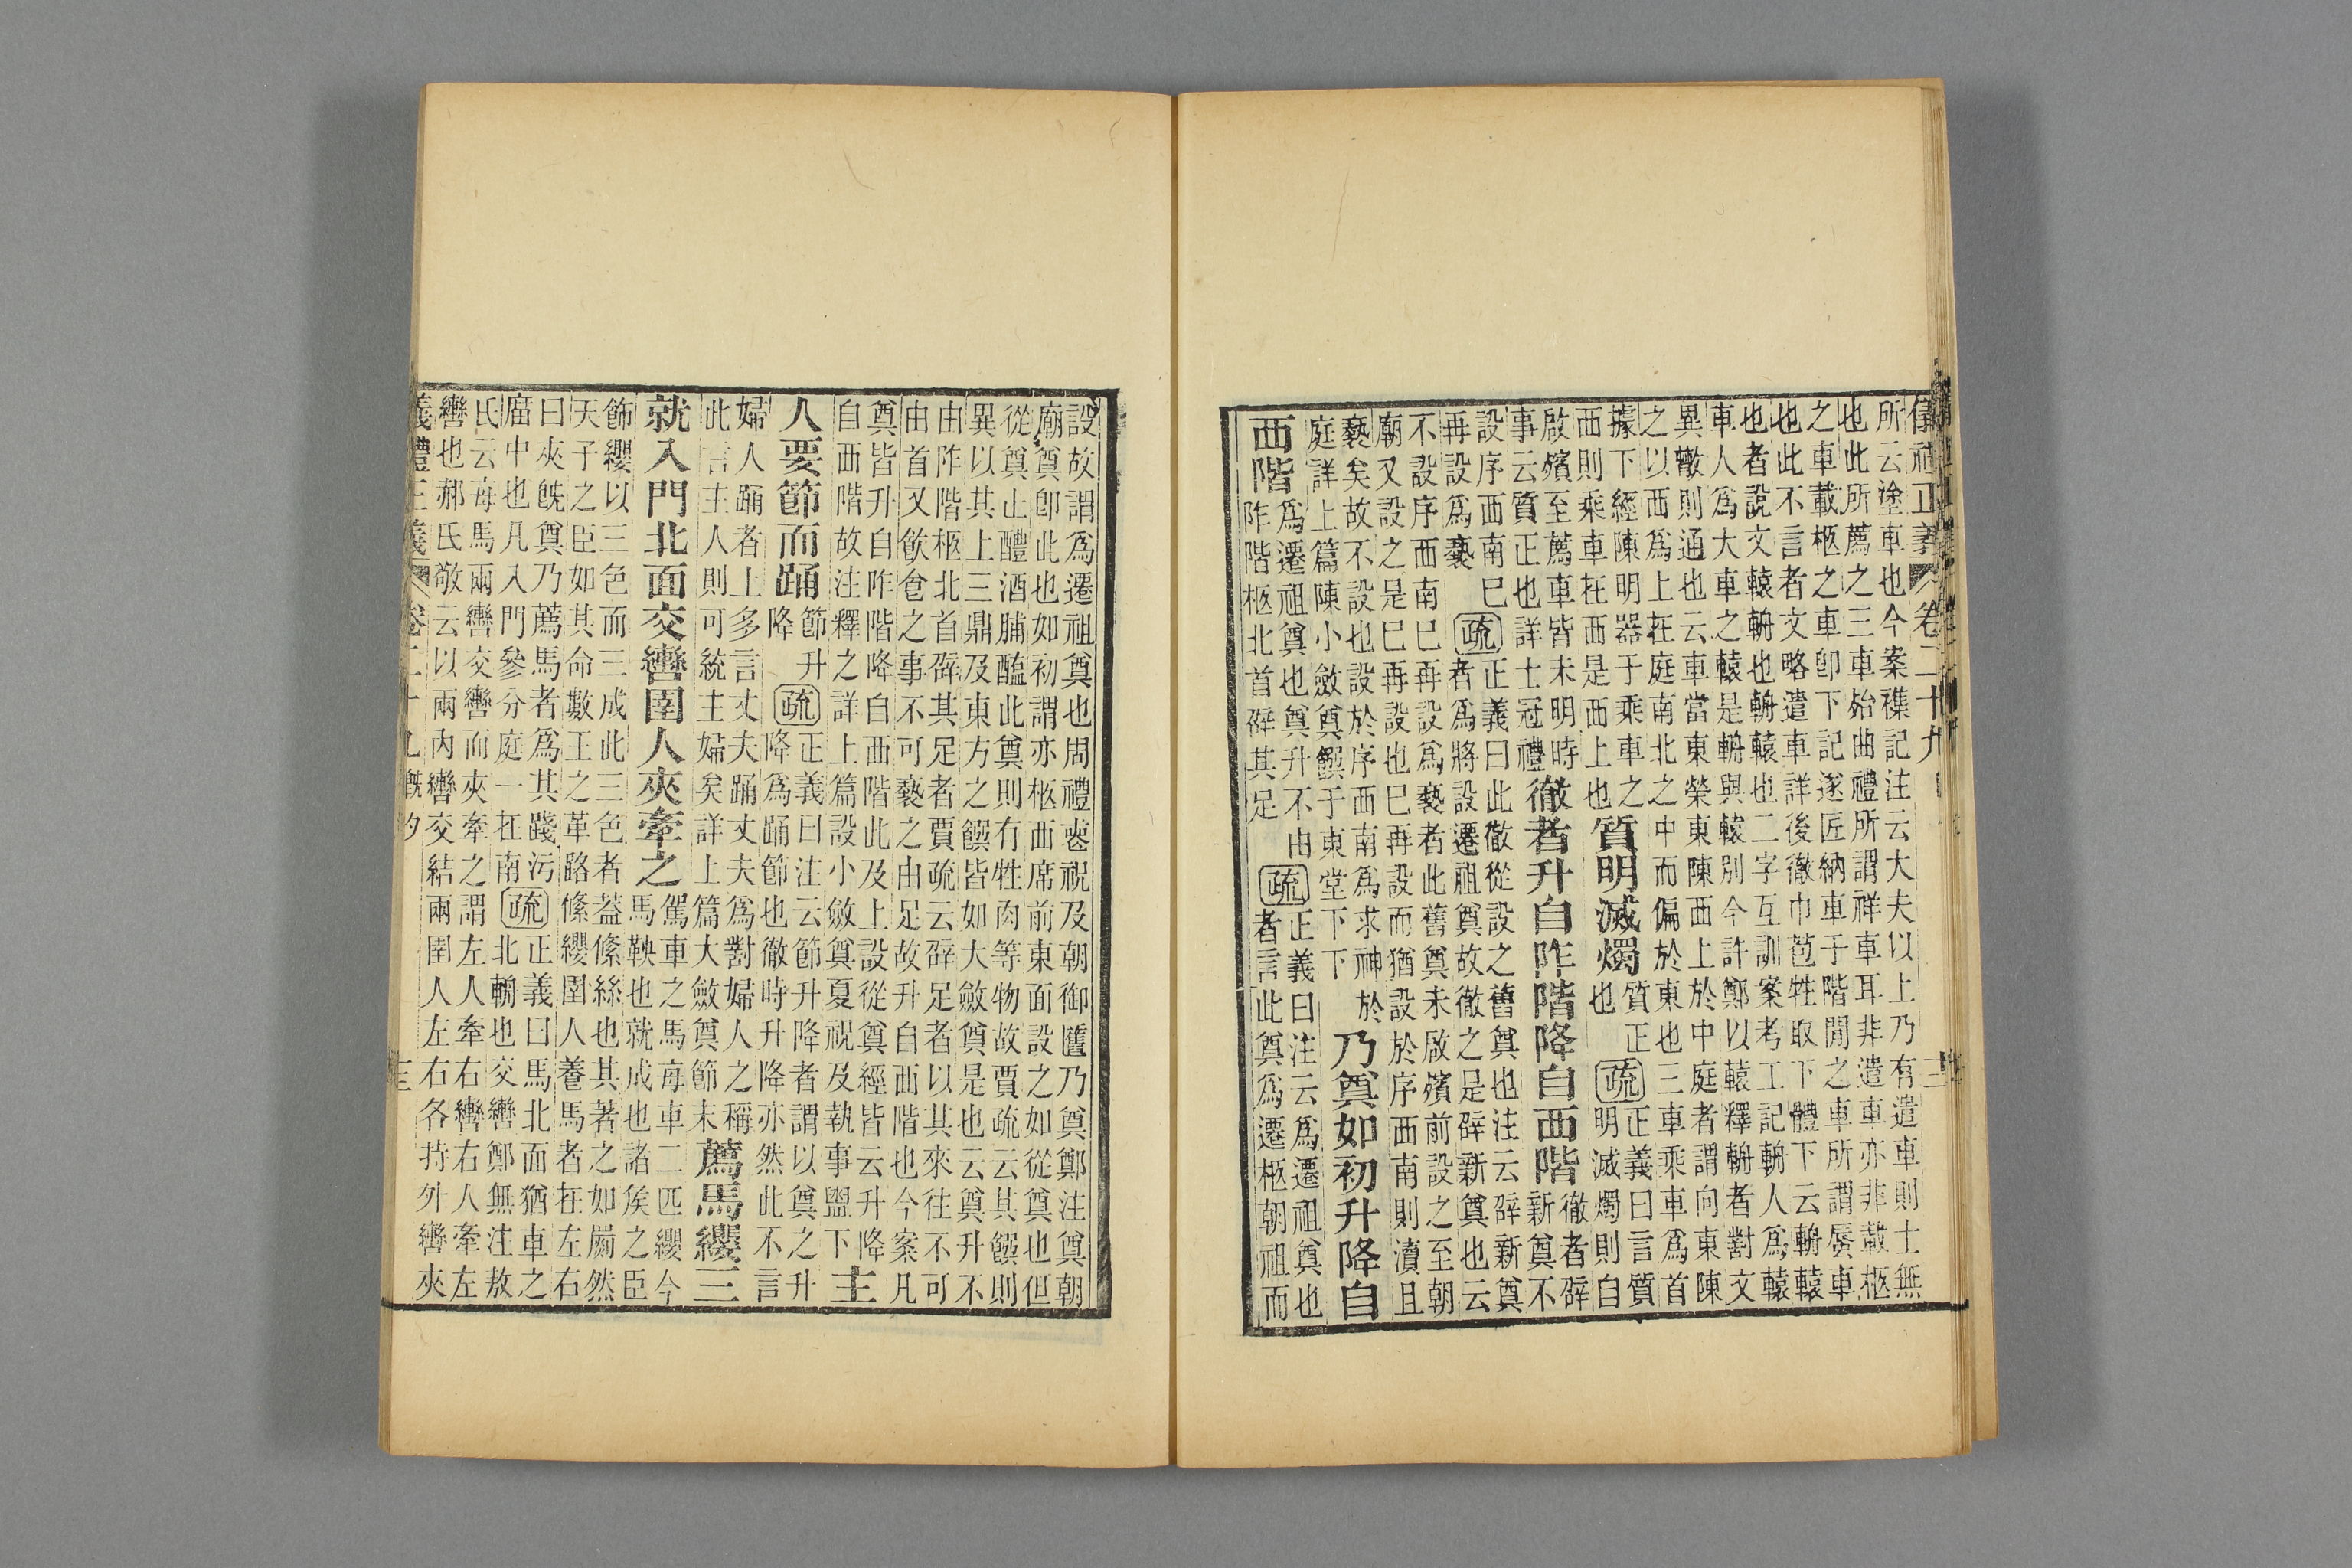 儀禮正義 卷二十九
所云塗車也今案襍記注云大夫以上乃有遣車則士無
也此所薦之三車殆曲禮所謂祥車耳非遣車亦非載柩
之車載柩之車卽下記遂匠納車于階閒之車所謂蜃車
也此不言者文略遣車詳後徹巾苞牲取下體下云輈轅
也者說文轅輈也輈轅也二字互訓案考工記輈人爲轅
車人爲大車之轅是輈與轅別今許鄭以轅釋輈者對文
異散則通也云車當東榮東陳西上於中庭者謂向東陳
之以西爲上在庭南北之中而偏於東也三車乘車爲首
據下經陳明器于乘車之
西則乘車在西是西上也
質明滅燭
質正
也
疏
正義曰言質
明滅燭則自
啟殯至薦車皆未明時
事云質正也詳士冠禮
徹者升自阼階降自西階
徹者辟
新奠不
設序西南已
再設爲褻
疏
正義曰此徹從設之舊奠也注云辟新奠
者爲將設遷祖奠故徹之是辟新奠也云
不設序西南已再設爲褻者此舊奠未啟殯前設之至朝
廟又設之是已再設也已再設而猶設於序西南則瀆且
褻矣故不設也設於序西南爲求神於
庭詳上篇陳小斂奠饌于東堂下下
乃奠如初升降自
西階
爲遷祖奠也奠升不由
阼階柩北首辟其足
疏
正義曰注云爲遷祖奠也
者言此奠爲遷柩朝祖而
設故謂爲遷祖奠也周禮喪祝及朝御匶乃奠鄭注奠朝
廟奠卽此也如初謂亦柩西席前東面設之如從奠也但
從奠止醴酒脯醢此奠則有牲肉等物故賈疏云其饌則
異以其上三鼎及東方之饌皆如大斂奠是也云奠升不
由阼階柩北首辟其足者賈疏云辟足者以其來往不可
由首又飲食之事不可褻之由足故升自西階也今案凡
奠皆升自阼階降自西階此及上設從奠經皆云升降
自西階故注釋之詳上篇設小斂奠夏祝及執事盥下
主
人要節而踊
節升
降
疏
正義曰注云節升降者謂以奠之升
降爲踊節也徹時升降亦然此不言
婦人踊者上多言丈夫踊丈夫爲對婦人之稱
此言主人則可統主婦矣詳上篇大斂奠節末
薦馬纓三
就入門北面交轡圉人夾牽之
駕車之馬每車二匹纓今
馬鞅也就成也諸侯之臣
飾纓以三色而三成此三色者蓋絛絲也其著之如罽然
天子之臣如其命數王之革路絛纓圉人養馬者在左右
曰夾旣奠乃薦馬者爲其踐污
廟中也凡入門參分庭一在南
疏
正義曰馬北面猶車之
北輈也交轡鄭無注敖
氏云每馬兩轡交轡而夾牽之謂左人牽右轡右人牽左
轡也郝氏敬云以兩內轡交結兩圉人左右各持外轡夾
儀禮正義 卷二十九 旣夕